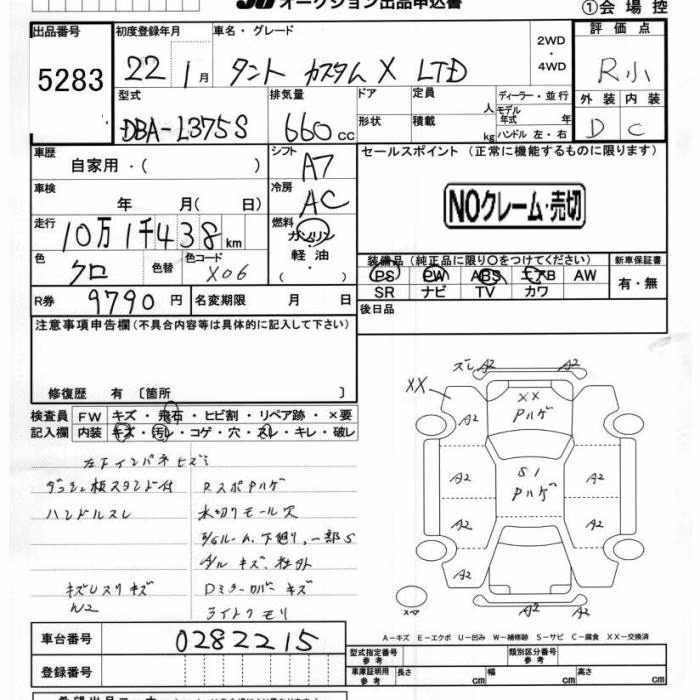 オークション出品申込書
①会 場 控
出品番号 初度登録年月 車名・グレード 2WD ・ 4WD 評 価 点
5283 22 1月 タント カスタム X LTD R小
型式 排気量 ドア 定員 人 ディーラー・並行 外 装 内 装
DBA-L375S 660 cc 形状 積載 kg モデル年式 年 ハンドル 左・右 D C
車歴 自家用・( ) シフト A7 セールスポイント (正常に機能するものに限ります)
車検 年 月( 日) 冷房 AC NOクレーム・売切
走行 10万1千438 km 燃料 ガソリン・軽油・( )
色 クロ 色替 色コード X06
装備品 (純正品に限り○をつけてください) 新車保証書
PS PW ABS エアB AW 有・無
SR ナビ TV カワ
R券 9790 円 名変期限 月 日 後日品
注意事項申告欄 (不具合内容等は具体的に記入して下さい)
修復歴 有 〔箇所 〕
検査員 FW キズ・飛石・ヒビ割・リペア跡・×要
記入欄 内装 キズ・汚レ・コゲ・穴・スレ・キレ・破レ
ダッシュ板スタンド付 Rスポハゲ
ハンドルスレ 水切りモール穴
キズUスリキズ Dミラーカバーキズ
W2 ライトクモリ
ズレ A2 A2
XX XX
ハゲ
A2 S1 A2
ハゲ
A2 A2
A2 A2
スペア A2 A2
A-キズ E-エクボ U-凹み W-補修跡 S-サビ C-腐食 XX-交換済
車台番号 0282215 型式指定番号 参考 類別区分番号 参考
登録番号 車庫証明用 参考 長さ cm 幅 cm 高さ cm